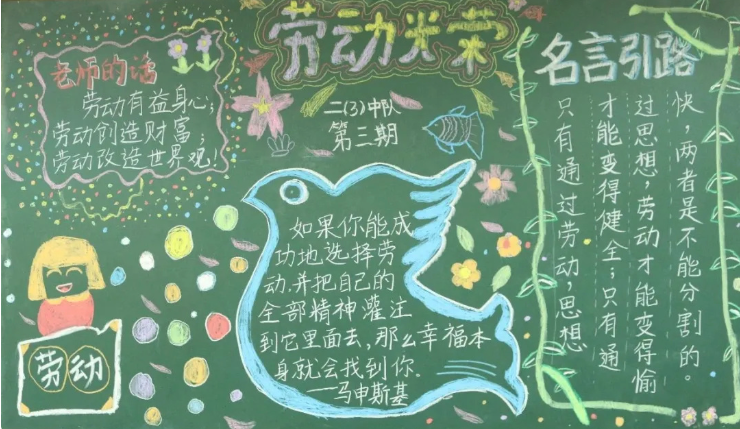 劳动光荣
二(3)中队
第三期
老师的话
劳动有益身心;
劳动创造财富;
劳动改造世界观!
如果你能成
功地选择劳
动.并把自己的
全部精神灌注
到它里面去,那么幸福本
身就会找到你.
——马申斯基
名言引路
只有通过劳动,思想
才能变得健全;只有通
过思想,劳动才能变得愉
快,两者是不能分割的。
劳动